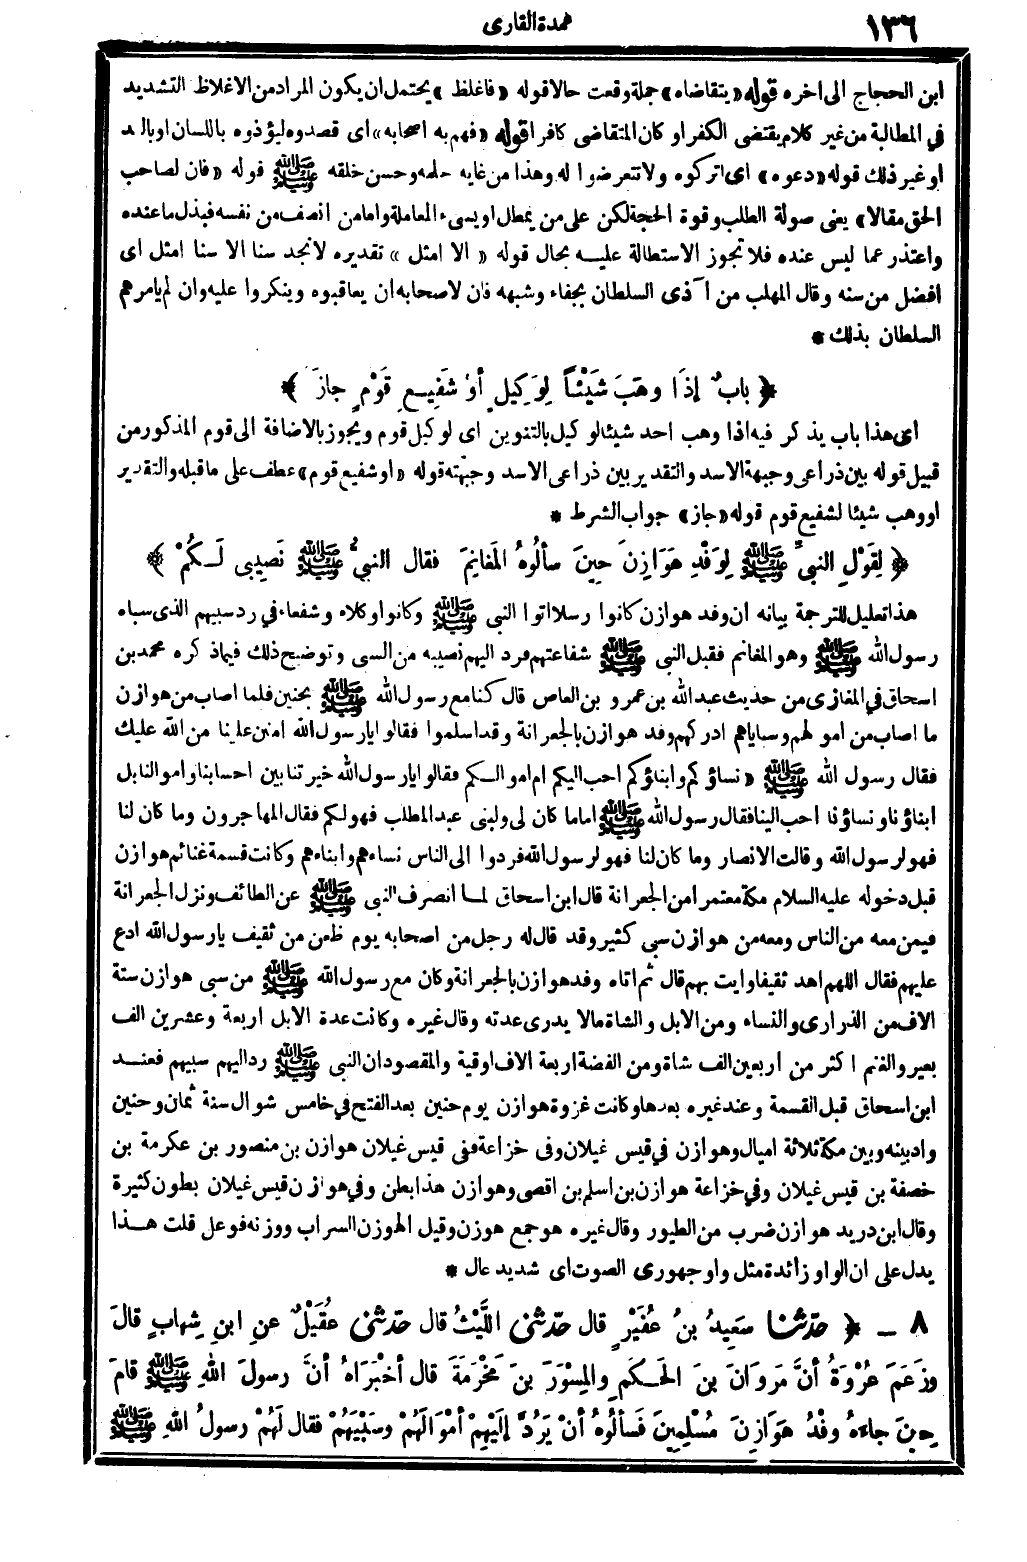 ١٣٦
عمدة القارى
ابن الحجاج الى اخره قوله «يتقاضاه» جملة وقعت حالا قوله «فاغلظ» يحتمل ان يكون المراد من الاغلاظ التشديد
في المطالبة من غير كلام يقتضى الكفر او كان المتقاضى كافرا قوله «فهم به اصحابه» اى قصدوه ليؤذوه باللسان او باليد
او غير ذلك قوله «دعوه» اى اتركوه ولا تتعرضوا له وهذا من غاية حلمه وحسن خلقه ﷺ قوله «فان لصاحب
الحق مقالا» يعنى صولة الطلب وقوة الحجة لكن على من يمطل او يسىء المعاملة واما من انصف من نفسه فبذل ما عنده
واعتذر عما ليس عنده فلا تجوز الاستطالة عليــه بحال قوله «الا امثل» تقديره لا نجد سنا الا سنا امثل اى
افضل من سنه وقال المهلب من آذى السلطان بجفاء وشبهه فان لاصحابه ان يعاقبوه وينكروا عليه وان لم يامرهم
السلطان بذلك *
﴿ بابٌ إذَا وهَبَ شَيْئاً لِوَكِيلٍ أوْ شَفِيعِ قَوْمٍ جازَ ﴾
اى هذا باب يذكر فيه اذا وهب احد شيئا لوكيل بالتنوين اى لوكيل قوم ويجوز بالاضافة الى قوم المذكور من
قبيل قوله بين ذراعى وجبهة الاسد والتقدير بين ذراعى الاسد وجبهته قوله «او شفيع قوم» عطف على ما قبله والتقدير
او وهب شيئا لشفيع قوم قوله «جاز» جواب الشرط *
﴿ لِقَوْلِ النبيِّ ﷺ لِوَفْدِ هَوَازِنَ حِينَ سألُوهُ المَغانِمَ فقال النبيُّ ﷺ نَصِيبِى لَـكُمْ ﴾
هذا تعليل للترجمة بيانه ان وفد هوازن كانوا رسلا اتوا النبى ﷺ وكانوا وكلاء وشفعاء في رد سبيهم الذى سباه
رسول الله ﷺ وهو المغانم فقبل النبى ﷺ شفاعتهم فرد اليهم نصيبه من السبى وتوضيح ذلك فيما ذكره محمد بن
اسحاق في المغازى من حديث عبد الله بن عمرو بن العاص قال كنا مع رسول الله ﷺ بحنين فلما اصاب من هوازن
ما اصاب من اموالهم وسباياهم ادركهم وفد هوازن بالجعرانة وقد اسلموا فقالوا يارسول الله امنن علينا من الله عليك
فقال رسول الله ﷺ «نساؤكم وابناؤكم احب اليكم ام اموالـكم فقالوا يارسول الله خيرتنا بين احسابنا واموالنا بل
ابناؤنا ونساؤنا احب الينا فقال رسول الله ﷺ اما ما كان لى ولبنى عبد المطلب فهو لكم فقال المهاجرون وما كان لنا
فهو لرسول الله وقالت الانصار وما كان لنا فهو لرسول الله فردوا الى الناس نساءهم وابناءهم وكانت قسمة غنائم هوازن
قبل دخوله عليه السلام مكة معتمرا من الجعرانة قال ابن اسحاق لمـا انصرف النبى ﷺ عن الطائف ونزل الجعرانة
فيمن معه من الناس ومعه من هوازن سبى كثير وقد قال له رجل من اصحابه يوم ظعن من ثقيف يارسول الله ادع
عليهم فقال اللهم اهد ثقيفا وايت بهم قال ثم اتاه وفد هوازن بالجعرانة وكان مع رسول الله ﷺ من سبى هوازن ستة
الاف من الذرارى والنساء ومن الابل والشاة مالا يدرى عدته وقال غيره وكانت عدة الابل اربعة وعشرين الف
بعير والغنم اكثر من اربعين الف شاة ومن الفضة اربعة الاف اوقية والمقصود ان النبى ﷺ رد اليهم سبيهم فعنــد
ابن اسحاق قبل القسمة وعند غيره بعدها وكانت غزوة هوازن يوم حنين بعد الفتح في خامس شوال سنة ثمان وحنين
واد بينه وبين مكة ثلاثة اميال وهوازن في قيس غيلان وفى خزاعة ففى قيس غيلان هوازن بن منصور بن عكرمة بن
خصفة بن قيس غيلان وفي خزاعة هوازن بن اسلم بن اقصى وهوازن هذا بطن وفي هوازن قيس غيلان بطون كثيرة
وقال ابن دريد هوازن ضرب من الطيور وقال غيره هو جمع هوزن وقيل الهوزن السراب ووزنه فوعل قلت هــذا
يدل على ان الواو زائدة مثل واو جهورى الصوت اى شديد عال *
٨ ــ ﴿ حدّثنا سَعِيدُ بنُ عُفَيْرٍ قال حدّثنى اللَّيْثُ قال حدّثنى عُقَيْلٌ عنِ ابنِ شِهابٍ قالَ
وزَعَمَ عُرْوَةُ أنَّ مَرْوَانَ بنَ الحَـكَمِ والمِسْوَرَ بنَ مَخْرَمَةَ قال أخْبَرَاهُ أنَّ رسولَ اللهِ ﷺ قامَ
حِينَ جاءَهُ وفْدُ هَوَازِنَ مُسْلِمِينَ فَسألُوهُ أنْ يَرُدَّ إلَيْهِمْ أمْوَالَهُمْ وسَبْيَهُمْ فقال لَهُمْ رسولُ اللهِ ﷺ